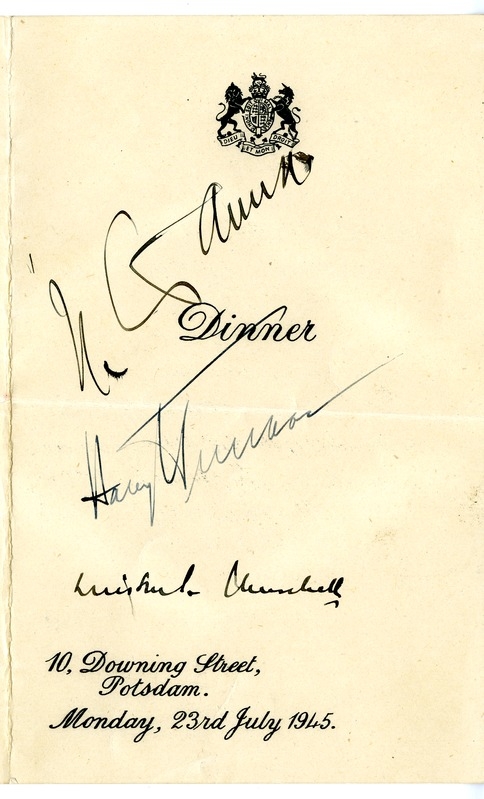 DIEU ET MON DROIT
И. Сталин
Dinner
Harry Truman
Winston S. Churchill
10, Downing Street,
Potsdam.
Monday, 23rd July 1945.